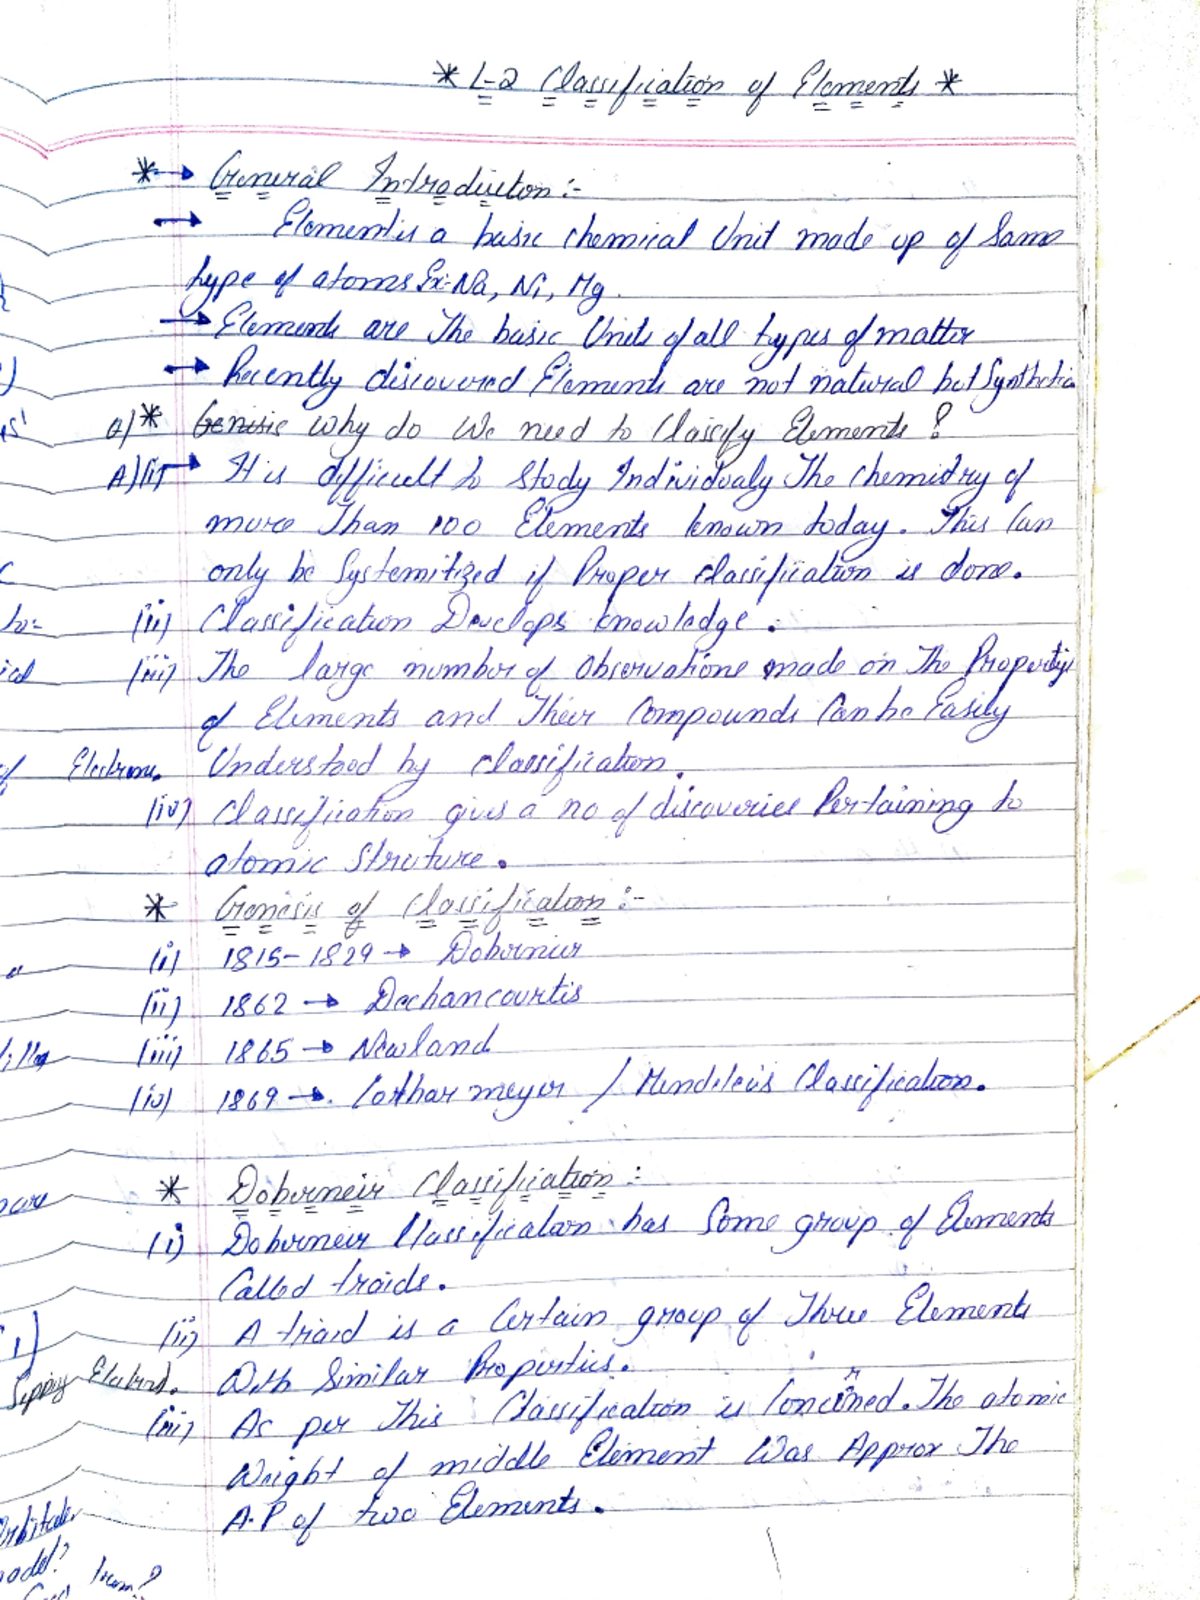 * L-2 Classification of Elements *
* → General Introduction :-
→ Element is a basic chemical Unit made up of Same
type of atoms Ex:- Na, Ni, Mg.
→ Elements are The basic Units of all types of matter
→ Recently discovered Elements are not natural but Synthetic
Q) * Why do We need to Classify Elements ?
A) (i) → It is difficult to Study Individualy The Chemistry of
more Than 100 Elements known today. This Can
only be Systemitized if Proper classification is done.
(ii) Classification Develops knowledge .
(iii) The large number of Observations made on The Propertys
of Elements and Their Compounds Can be Easily
of Electrons. Understood by classification.
(iv) Classification gives a no of discoveries Pertaining to
atomic Struture .
* Genesis of Classification :-
(i) 1815-1829 → Dobernier
(ii) 1862 → Dechancourtis
(iii) 1865 → Newland
(iv) 1869 → Lothar meyer / Mendeleis Classification.
* Doberneir Classification :-
(i) Doberneir Classification has Some group of Elements
Called traids .
(ii) A triad is a Certain group of Three Elements
With Similar Properties.
(iii) As per This Classification is Concerned. The atomic
Weight of middle Element Was Approx The
A.P of two Elements .